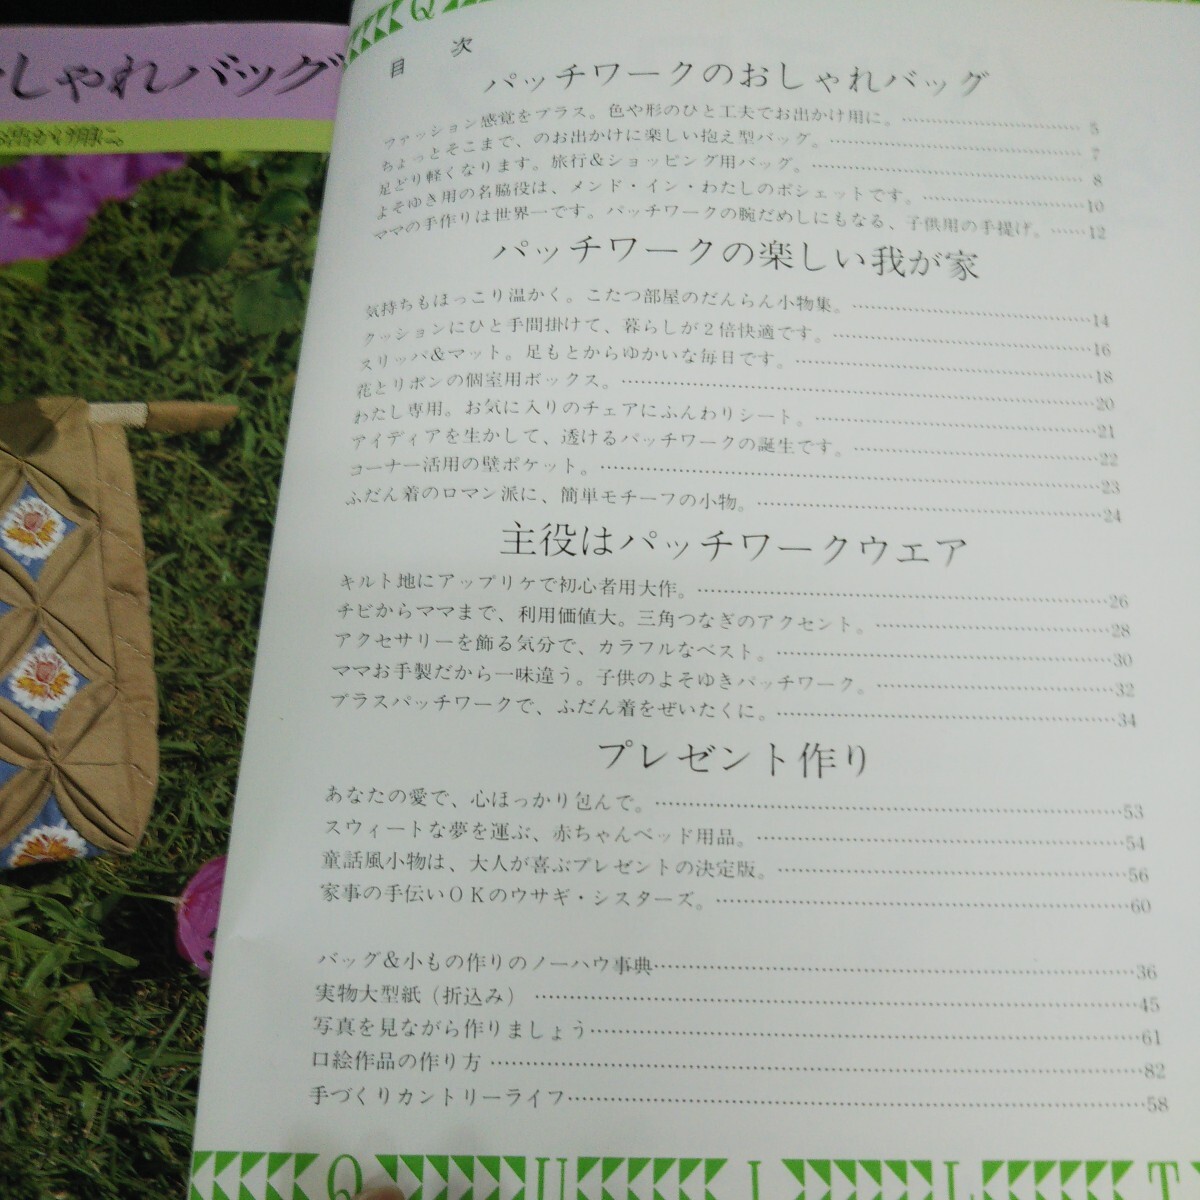 しゃれバッグ
お出かけ用に。
Q
目　次
パッチワークのおしゃれバッグ
ファッション感覚をプラス。色や形のひと工夫でお出かけ用に。……5
ちょっとそこまで、のお出かけに楽しい抱え型バッグ。……7
足どり軽くなります。旅行&ショッピング用バッグ。……8
よそゆき用の名脇役は、メンド・イン・わたしのポシェットです。……10
ママの手作りは世界一です。パッチワークの腕だめしにもなる、子供用の手提げ。……12
パッチワークの楽しい我が家
気持ちもほっこり温かく。こたつ部屋のだんらん小物集。……14
クッションにひと手間掛けて、暮らしが2倍快適です。……16
スリッパ&マット。足もとからゆかいな毎日です。……18
花とリボンの個室用ボックス。……20
わたし専用。お気に入りのチェアにふんわりシート。……21
アイディアを生かして、透けるパッチワークの誕生です。……22
コーナー活用の壁ポケット。……23
ふだん着のロマン派に、簡単モチーフの小物。……24
主役はパッチワークウエア
キルト地にアップリケで初心者用大作。……26
チビからママまで、利用価値大。三角つなぎのアクセント。……28
アクセサリーを飾る気分で、カラフルなベスト。……30
ママお手製だから一味違う。子供のよそゆきパッチワーク。……32
プラスパッチワークで、ふだん着をぜいたくに。……34
プレゼント作り
あなたの愛で、心ほっかり包んで。……53
スウィートな夢を運ぶ、赤ちゃんベッド用品。……54
童話風小物は、大人が喜ぶプレゼントの決定版。……56
家事の手伝いOKのウサギ・シスターズ。……60
バッグ&小もの作りのノーハウ事典……36
実物大型紙（折込み）……45
写真を見ながら作りましょう……61
口絵作品の作り方……82
手づくりカントリーライフ……58
QUILT